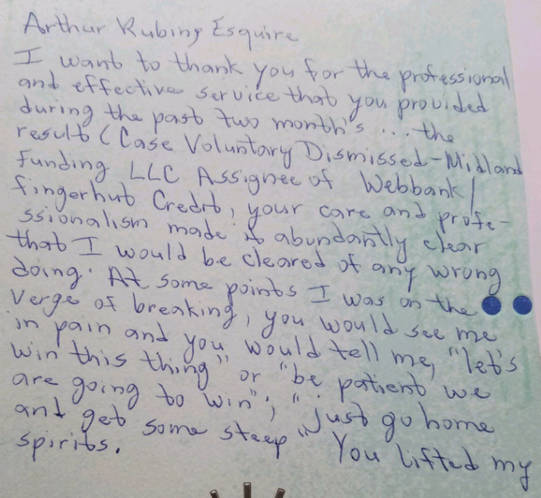 Arthur Rubing Esquire
I want to thank you for the professional
and effective service that you provided
during the past two month's ... the
result (Case Voluntary Dismissed - Midland
Funding LLC Assignee of Webbank/
fingerhut Credit, your care and profe-
ssionalism made it abundantly clear
that I would be cleared of any wrong
doing. At some points I was on the
verge of breaking, you would see me
in pain and you would tell me, "let's
win this thing" or "be patient we
are going to win"; "just go home
and get some sleep" You lifted my
spirits.